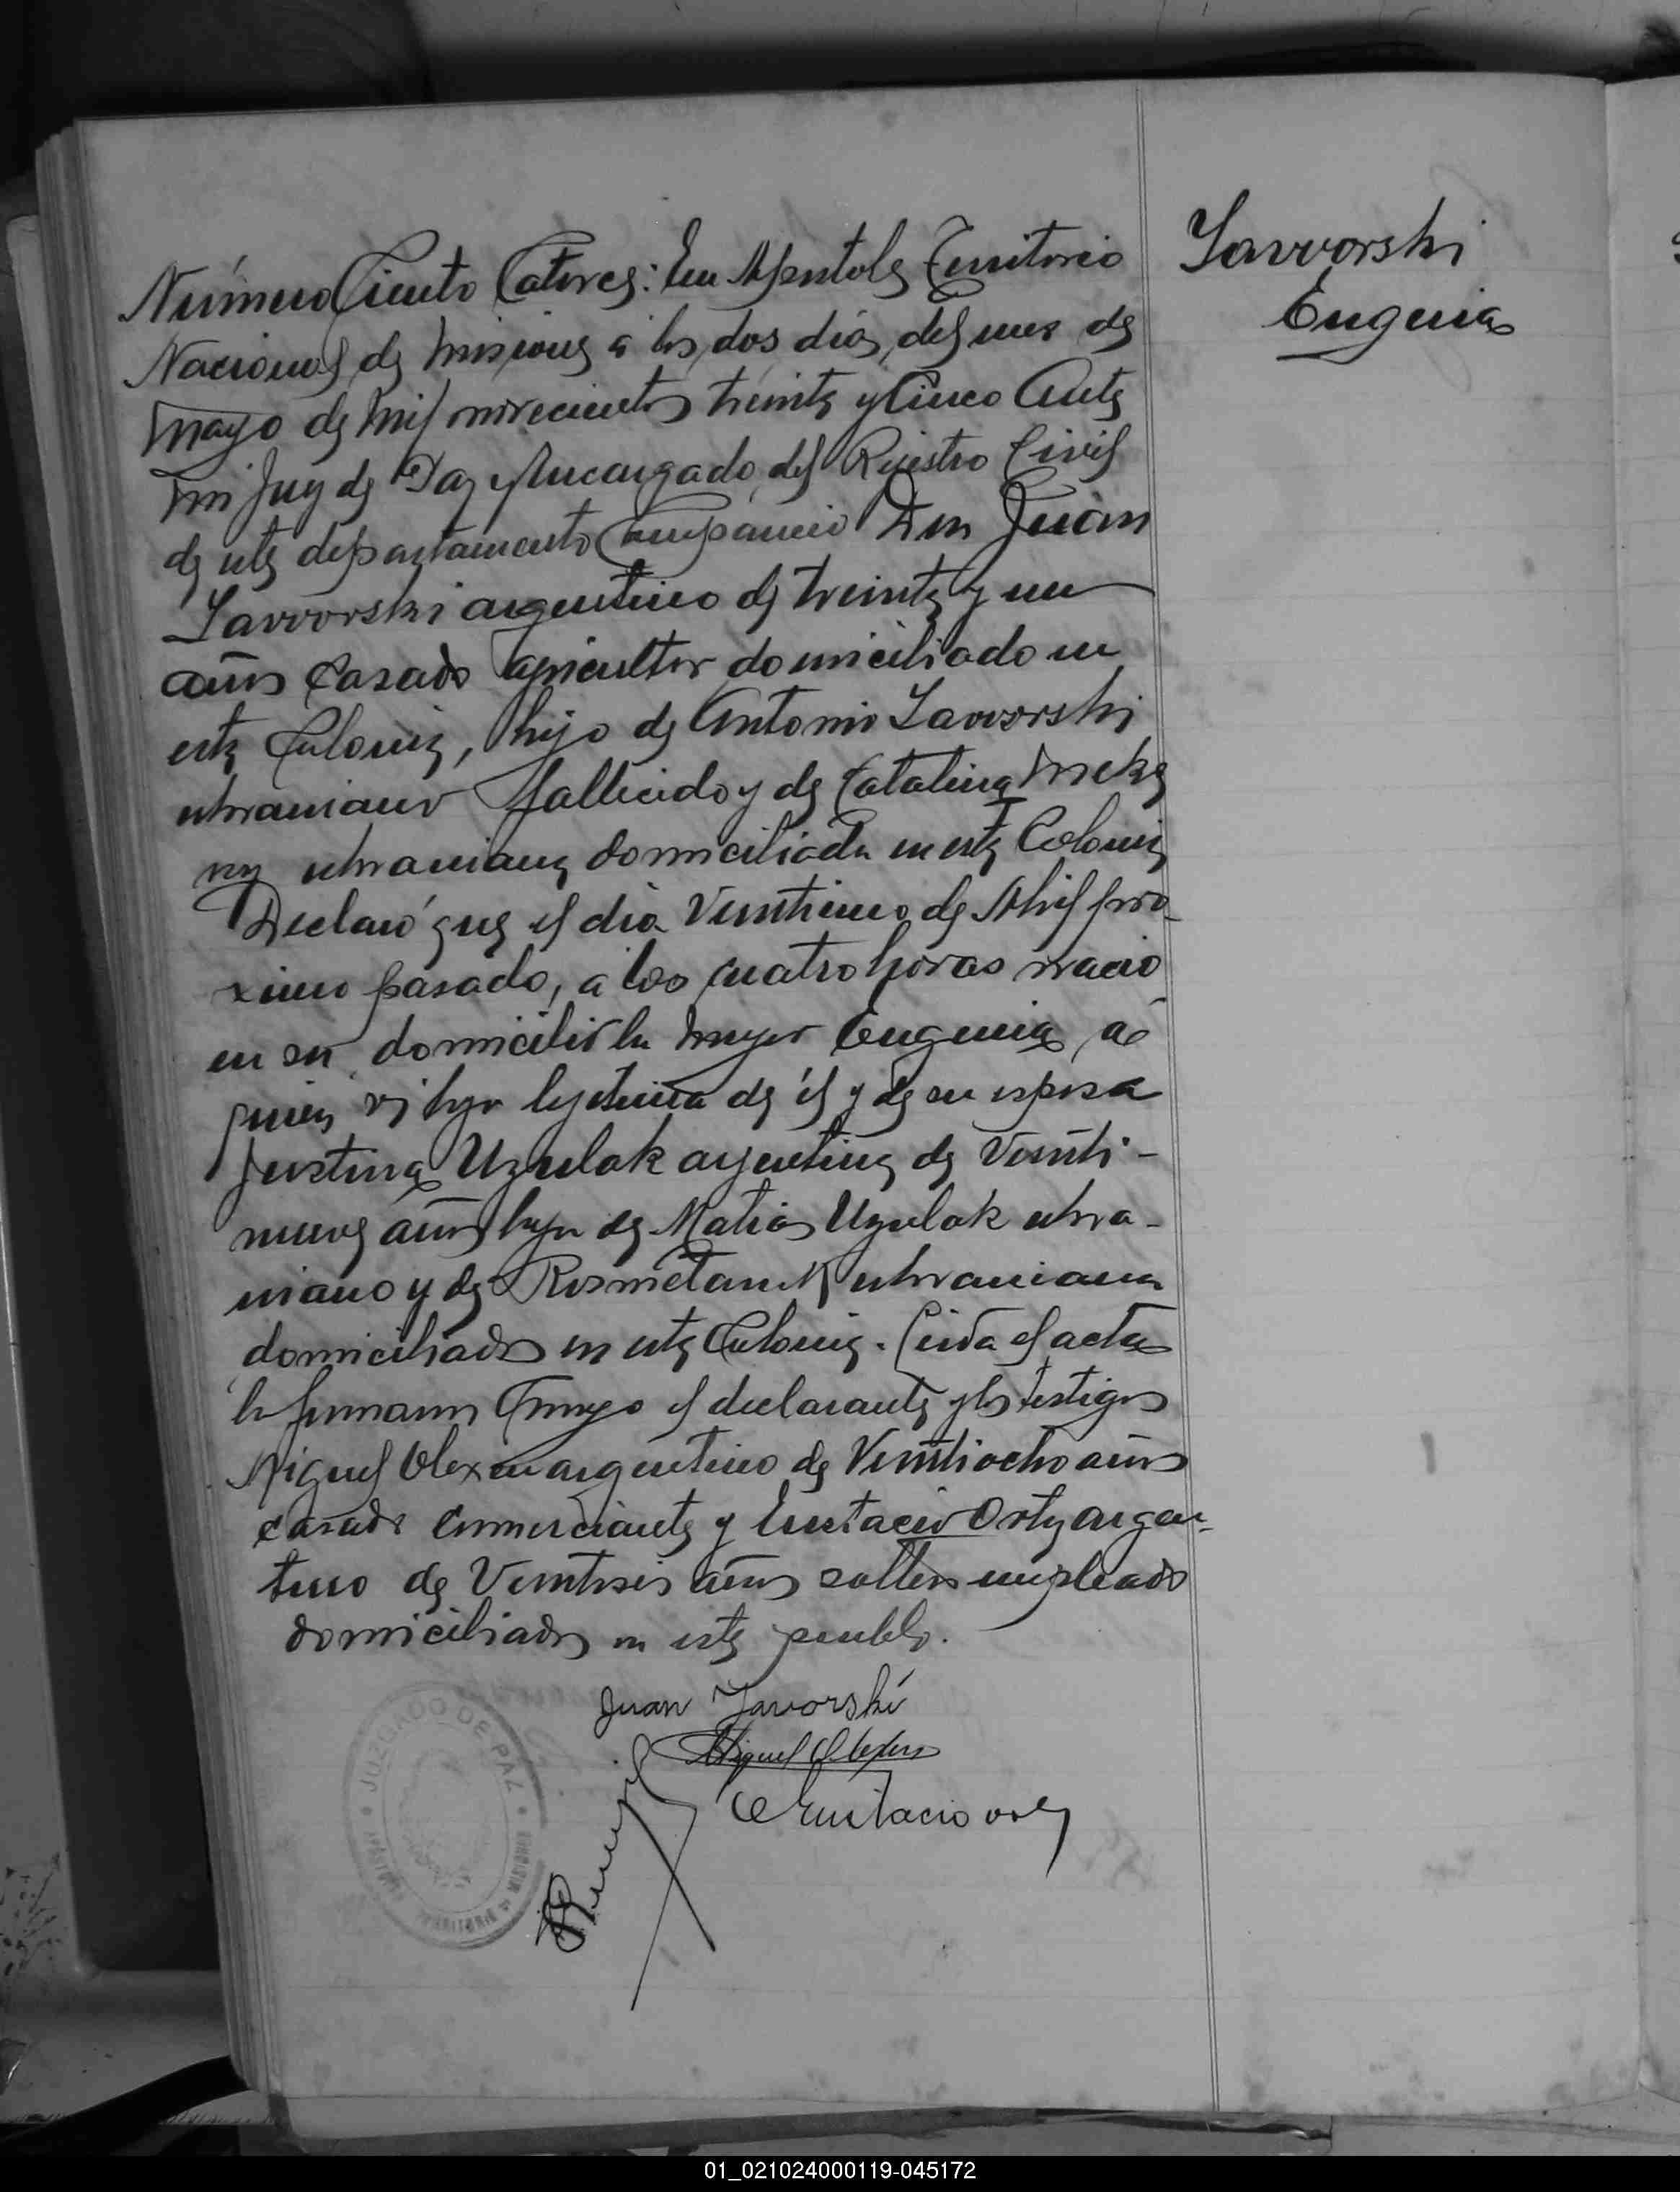 Número Ciento Catorce: En Apostoles Territorio
Nacional de Misiones a los dos dias del mes de
mayo de mil novecientos treinta y Cinco Ante
mi Juez de Paz y Encargado del Rejistro Civil
de este departamento Compareció Don Juan
Javvorski argentino de treinta y un
años Casado agricultor domiciliado en
esta Colonia, hijo de Antonio Javvorski
ukraniano fallecido y de Catalina
ukraniana domiciliada en esta Colonia
Declaró que el dia de Abril pro-
ximo pasado, a las cuatro horas nació
en su domicilio la mujer Eugenia a
quien vi hija lejitima de él y de su esposa
Justina Uzulak arjentina de Veinti-
nueve años hija de Matias Uzulak ukra-
niano y de ukraniana
domiciliados en esta Colonia. Leida el acta
la firmaron Conmigo el declarante y los testigos
Miguel Olexen argentino de Veintiocho años
casado Comerciante y Eustacio Ortz argen-
tino de Veintiseis años soltero empleado
domiciliados en este pueblo.
Javvorski
Eugenia
Juan Javorski
Miguel Olexen
Eustacio
JUZGADO DE PAZ
01_021024000119-045172